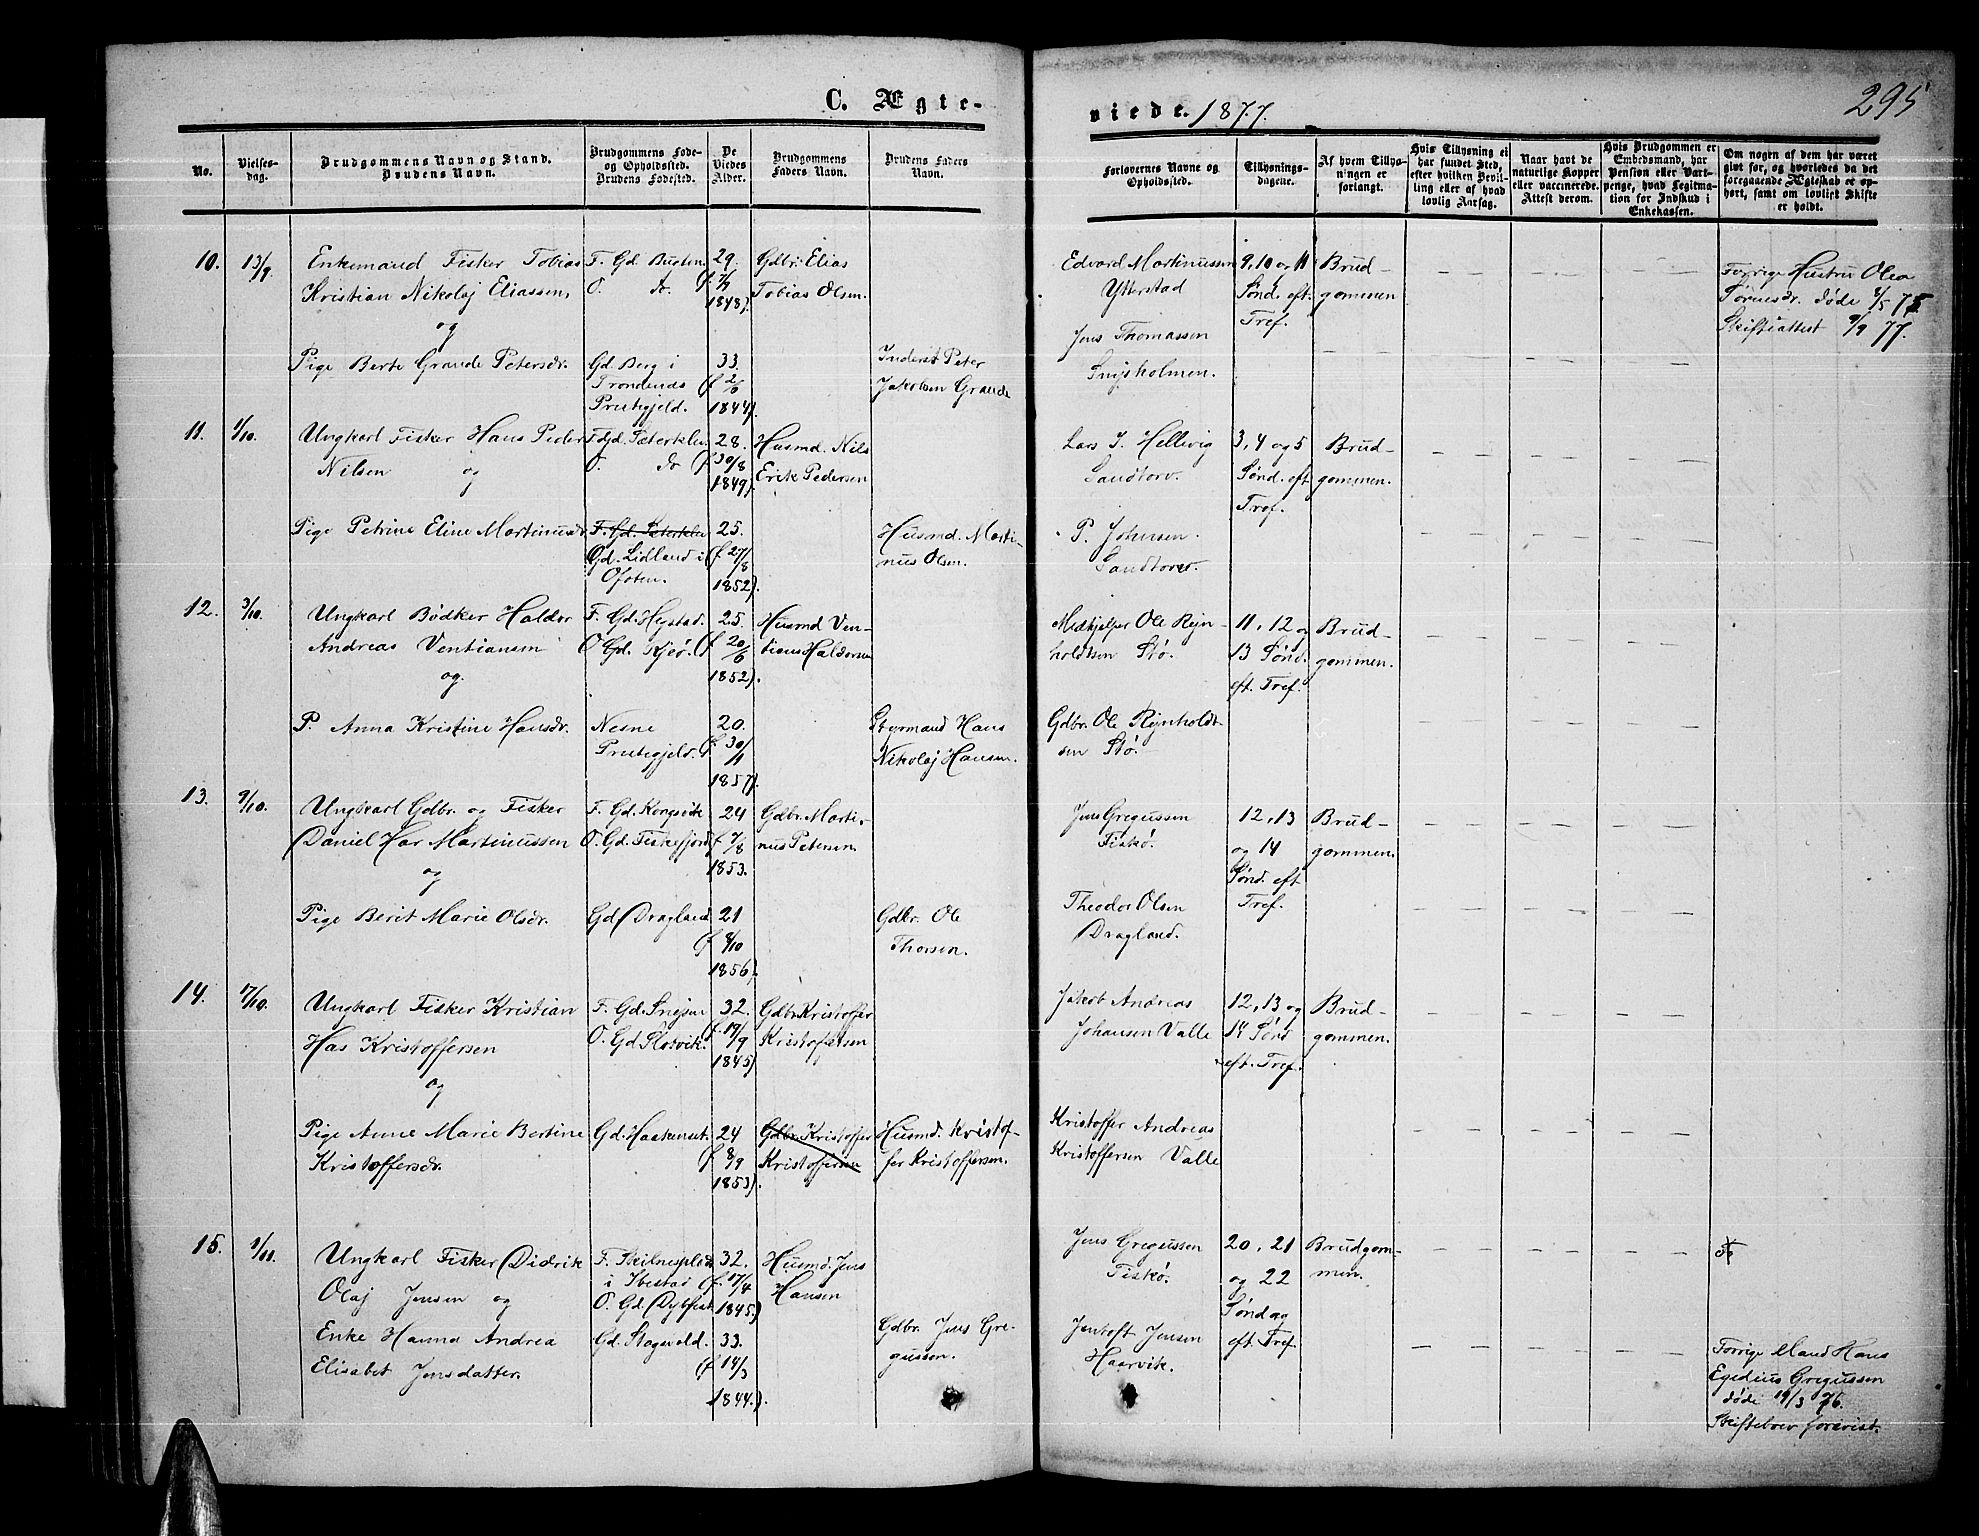 C. Ægte-
viede. 1877.
295
No.
Vielses-
dag.
Brudgommens Navn og Stand.
Brudens Navn.
Brudgommens Føde-
og Opholdssted.
Brudens Fødested.
De
Viedes
Alder.
Brudgommens
Faders Navn.
Brudens Faders
Navn.
Forlovernes Navne og
Opholdssted.
Tillysnings-
dagene.
Af hvem Tillys-
ningen er
forlangt.
Hvis Tillysning ei
har fundet Sted,
efter hvilken Bevil-
ling eller af hvad
lovlig Aarsag.
Naar havt de
naturlige Kopper
eller vaccinerede.
Attest derom.
Hvis Brudgommen er
Embedsmand, har
Pension eller Vart-
penge, hvad Legitima-
tion for Indskud i
Enkekassen.
Om nogen af dem har været
givt før, og hvorledes da det
foregaaende Ægteskab er op-
hørt, samt om lovligt Skifte
er holdt.
10. 13/9
Enkemand Fisker Tobias
Kristian Nikolaj Eliassen,
og
F. Gd. Busten
O. do.
29.
(f. 7/7
1848).
Gdbr. Elias
Tobias Olsen.
Edvard Martinussen
Ytterstad
9, 10 og 11
Sønd. eft.
Tref.
Brud-
gommen
Forrige Hustru Olea
døde 4/5 75
Skifteattest 9/9 77.
Pige Berte Grande Petersdr.
Gd. Berg i
Trondenæs
Prestegjeld.
33.
(f. 2/6
1844).
Inderst Peter
Jakobsen Grande
Jens Thomassen
11. 1/10.
Ungkarl Fisker Hans Peder
Nilsen og
F. Gd.
O. do
28.
(f. 30/8
1849).
Husmd. Nils
Erik Pedersen
Lars J. Hellevig
Sandtorv.
3, 4 og 5
Sønd. eft
Tref.
Brud-
gommen.
Pige Petrine Eline Martinusdr
Gd. Lidland i
Ofoten.
25.
(f. 27/8
1852).
Husmd. Marti-
nus Olsen.
P. Johnsen.
Sandtorv.
12. 3/10.
Ungkarl Bødker Haldor
Andreas Ventiansen
og.
F. Gd.
O. Gd. Kjør.
25.
(f. 20/6
1852).
Husmd Ven-
tians Haldorsen
Medhjelper Ole Rejn-
holdtsen Stø.
11, 12 og
13 Sønd.
eft. Tref.
Brud-
gommen.
P. Anna Kristine Hansdr.
Nesne
Prestegjeld.
20.
(f. 30/1
1857).
Styrmand Hans
Nikolaj Hansen.
Gdbr. Ole Rejnholdt-
sen Stø.
13. 9/10.
Ungkarl Gdbr. og Fisker
Daniel Har Martinussen
og
F. Gd. Kongsvik
O. Gd. Fiskefjord
24
(f. 7/8
1853.
Gdbr. Marti-
nus Petersen.
Jens Gregussen
Fiskø.
12, 13
og 14
Sønd. eft
Tref.
Brud-
gommen.
Pige Berit Marie Olsdr.
Gd. Dragland
21
(f. 8/10
1856).
Gdbr. Ole
Thorsen.
Theodor Olsen
Dragland.
14. 17/10.
Ungkarl Fisker Kristian
Has Kristoffersen
og
F. Gd.
O. Gd. Slotvik.
32.
(f. 17/9
1845)
Gdbr. Kristoffer
Kristoffersen
Jakob Andreas
Johansen Valle
12, 13 og
14 Sønd
eft. Tref.
Brud-
gommen.
Pige Anne Marie Bertine
Kristoffersdr.
Gd. Haakenset.
24
(f. 8/9
1853).
Gdbr. Kristoffer
Kristoffersen
Husmd. Kristof-
fer Kristoffersen.
Kristoffer Andreas
Kristoffersen Valle
15. 1/11.
Ungkarl Fisker Didrik
Olaj Jensen og
i Ibestad
O. Gd. Dybfest
32.
(f. 17/4
1845.)
Husmd. Jens
Hansen
Jens Gregussen
Fiskø.
20, 21
og 22
Søndag
eft. Tref.
Brudgom-
men.
Enke Hanna Andrea
Elisabet Jensdatter.
33.
(f. 14/3
1844.)
Gdbr. Jens Gre-
gussen.
Jentoft Jensen
Haarvik.
Forrige Mand Hans
Egedius Gregussen
døde 19/3 76.
Skiftebrev forevist.